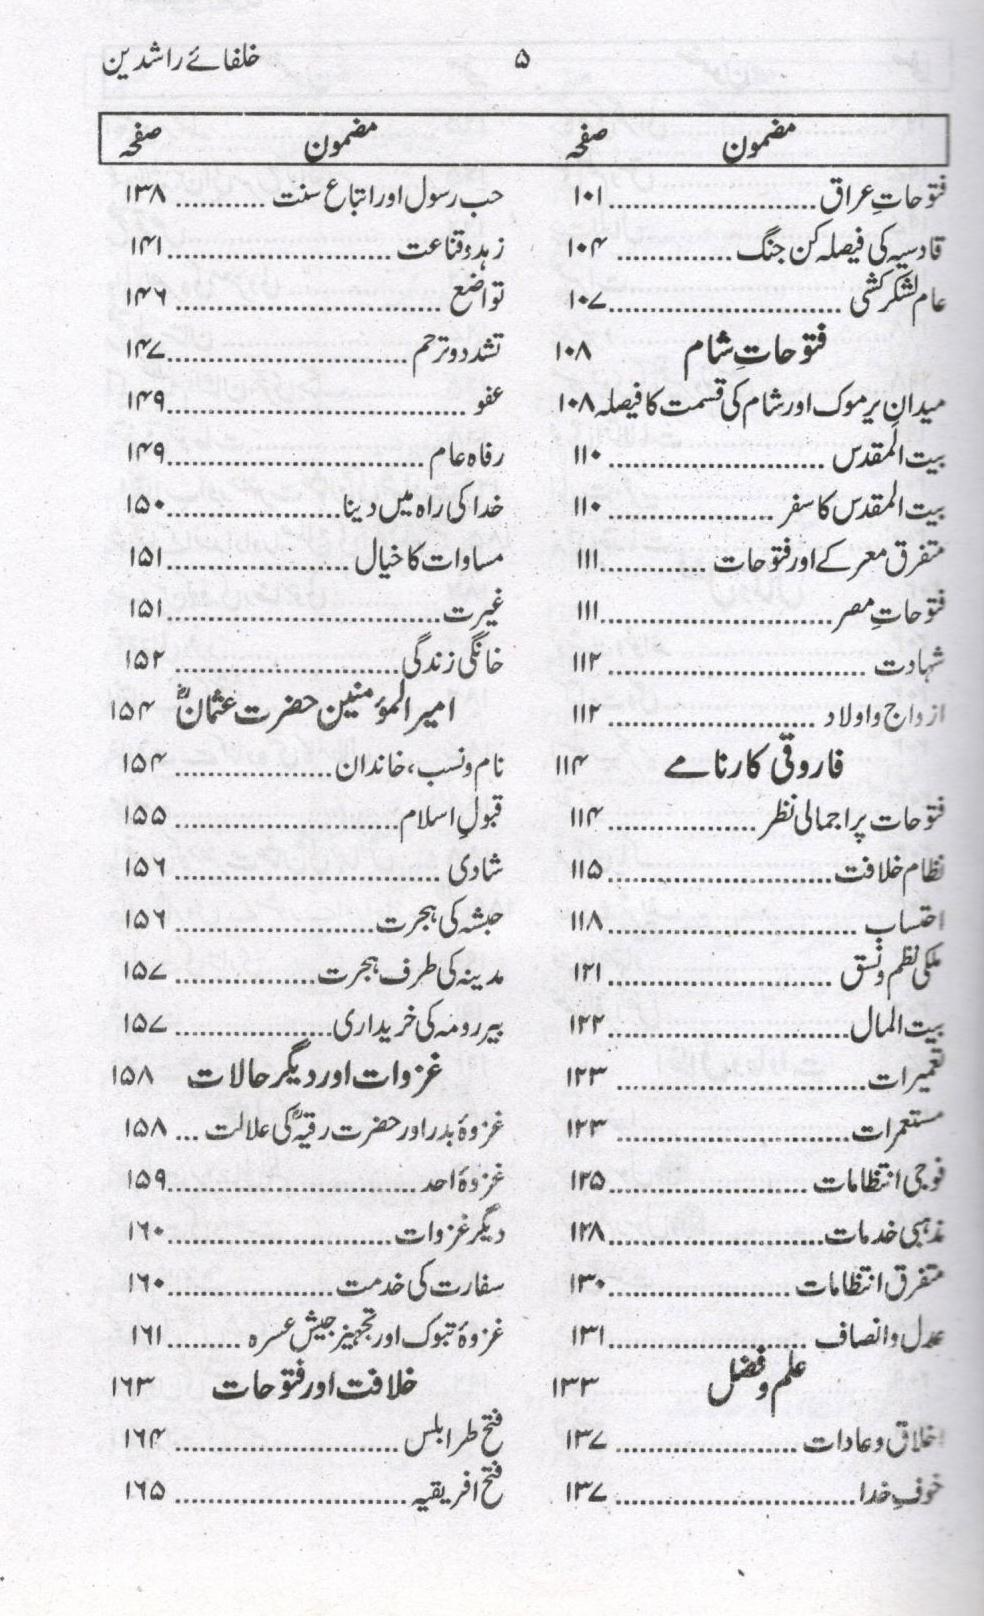 خلفائے راشدین ۵
مضمون صفحہ
فتوحاتِ عراق ۱۰۱
قادسیہ کی فیصلہ کن جنگ ۱۰۴
عام لشکر کشی ۱۰۷
فتوحاتِ شام ۱۰۸
میدانِ یرموک اور شام کی قسمت کا فیصلہ ۱۰۸
بیت المقدس ۱۱۰
بیت المقدس کا سفر ۱۱۰
متفرق معرکے اور فتوحات ۱۱۱
فتوحاتِ مصر ۱۱۱
شہادت ۱۱۲
ازواج و اولاد ۱۱۲
فاروقی کارنامے ۱۱۴
فتوحات پر اجمالی نظر ۱۱۴
نظام خلافت ۱۱۵
احتساب ۱۱۸
ملکی نظم و نسق ۱۲۱
بیت المال ۱۲۲
تعمیرات ۱۲۳
مستعمرات ۱۲۳
فوجی انتظامات ۱۲۵
مذہبی خدمات ۱۲۸
متفرق انتظامات ۱۳۰
عدل و انصاف ۱۳۱
علم و فضل ۱۳۳
اخلاق و عادات ۱۳۷
خوفِ خدا ۱۳۷
مضمون صفحہ
حب رسول اور اتباع سنت ۱۳۸
زہد و قناعت ۱۴۱
تواضع ۱۴۶
تشدد و ترحم ۱۴۷
عفو ۱۴۹
رفاہ عام ۱۴۹
خدا کی راہ میں دینا ۱۵۰
مساوات کا خیال ۱۵۱
غیرت ۱۵۱
خانگی زندگی ۱۵۲
امیر المؤمنین حضرت عثمانؓ ۱۵۴
نام و نسب، خاندان ۱۵۴
قبولِ اسلام ۱۵۵
شادی ۱۵۶
حبشہ کی ہجرت ۱۵۶
مدینہ کی طرف ہجرت ۱۵۷
بیر رومہ کی خریداری ۱۵۷
غزوات اور دیگر حالات ۱۵۸
غزوۂ بدر اور حضرت رقیہؓ کی علالت ۱۵۸
غزوۂ احد ۱۵۹
دیگر غزوات ۱۶۰
سفارت کی خدمت ۱۶۰
غزوۂ تبوک اور تجہیز جیش عسرہ ۱۶۱
خلافت اور فتوحات ۱۶۳
فتح طرابلس ۱۶۴
فتح افریقیہ ۱۶۵